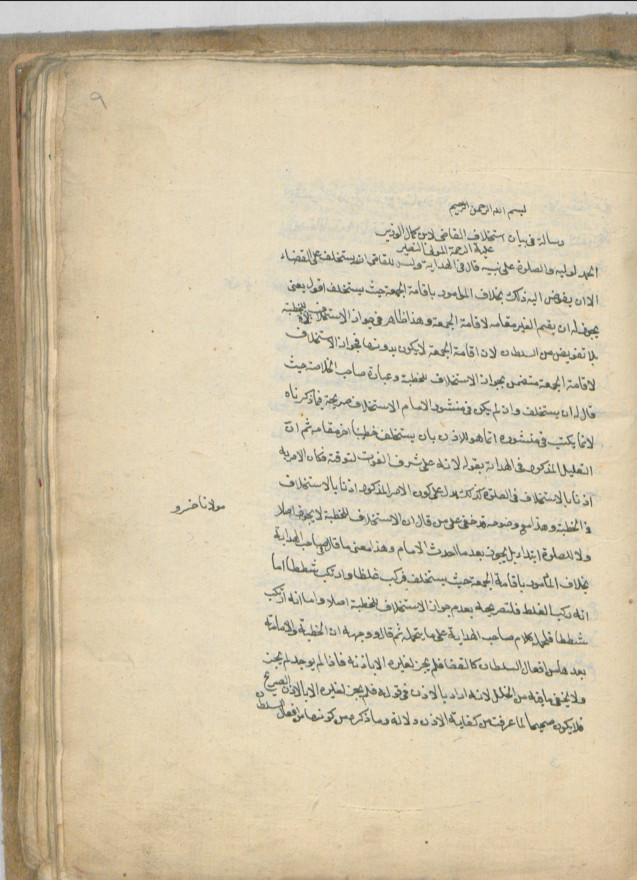 ٩
بسم الله الرحمن الرحيم
رسالة في بيان استخلاف القاضي لابن كمال الوزير
عليه الرحمة المولى القدير
الحمد لوليه والصلوة على نبيه قال في الهداية وليس للقاضي ان يستخلف على القضاء
الا ان يفوض اليه ذلك بخلاف المأمور باقامة الجمعة حيث يستخلف اقول يعني
يجوز له ان يقيم الغير مقامه لاقامة الجمعة وهذا ظاهر في جواز الاستخلاف للخطبة
بلا تفويض من السلطان لان اقامة الجمعة لا يكون بدونها فجواز الاستخلاف
لاقامة الجمعة متضمن بجواز الاستخلاف للخطبة وعبارة صاحب الخلاصة حيث
قال له ان يستخلف وان لم يكن في منشور الامام الاستخلاف صريحة فيما ذكرناه
لان ما يكتب في منشوره انما هو للاذن بان يستخلف خطيبا اخر مقامه ثم ان
التعليل المذكور في الهداية بقوله لانه على شرف الفوت لتوقته فكان الامر به
اذنا بالاستخلاف في الصلوة كذلك يدل على كون الامر المذكور اذنا بالاستخلاف
في الخطبة وهذا مع وضوحه قد خفي على من قال ان الاستخلاف للخطبة لا يجوز اصلا
مولانا خسرو
ولا للصلوة ابتداء بل يجوز بعد ما احدث الامام وهذا معنى ما قال صاحب الهداية
بخلاف المأمور باقامة الجمعة حيث يستخلف فركب غلطا وارتكب شططا اما
انه ركب الغلط فلتصريحه بعدم جواز الاستخلاف للخطبة اصلا واما انه ارتكب
شططا فلحمله كلام صاحب الهداية على ما يتحمله ثم قال ووجهه ان الخطبة والامامة
بعدها من افعال السلطان كالقضا فلم يجز لغيره الا باذنه فاذا لم يوجد لم يجز
ولا يخفى ما فيه من الخلل لانه اراد بالاذن في قوله فلم يجز لغيره الا بالاذن الصريح
فلا يكون صحيحا لما عرفت من كفاية الاذن دلالة وما ذكره من كونها من افعال السلطان